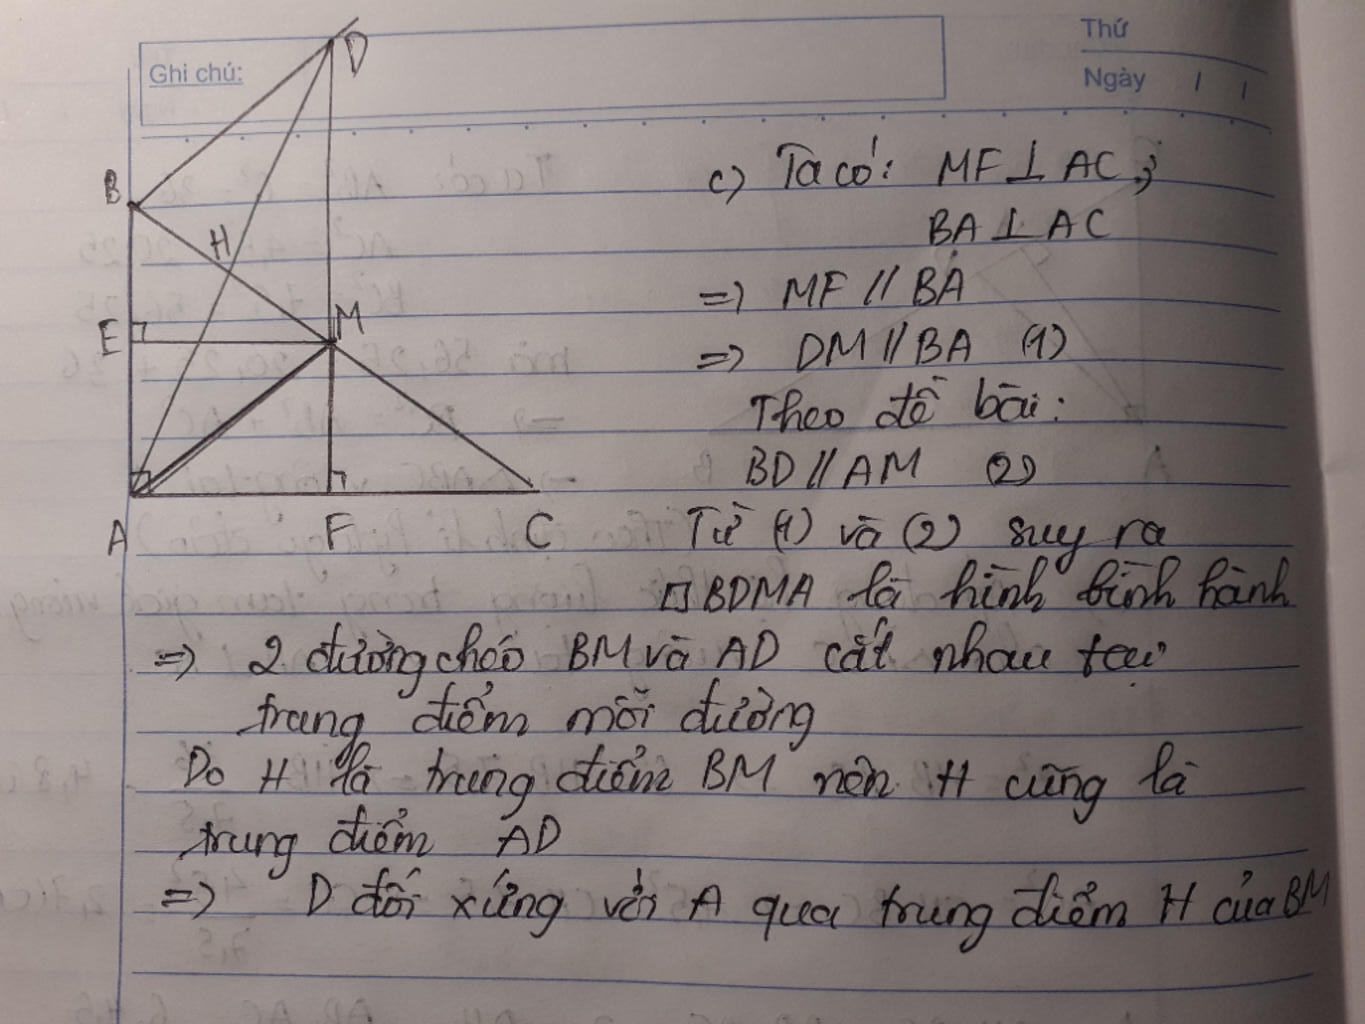 Thứ
Ghi chú:
Ngày / /
D
B
H
E
M
A
F
C
c) Ta có: MF ⊥ AC;
BA ⊥ AC
=> MF // BA
=> DM // BA (1)
Theo đề bài:
BD // AM (2)
Từ (1) và (2) suy ra
□ BDMA là hình bình hành
=> 2 đường chéo BM và AD cắt nhau tại
trung điểm mỗi đường
Do H là trung điểm BM nên H cũng là
trung điểm AD
=> D đối xứng với A qua trung điểm H của BM